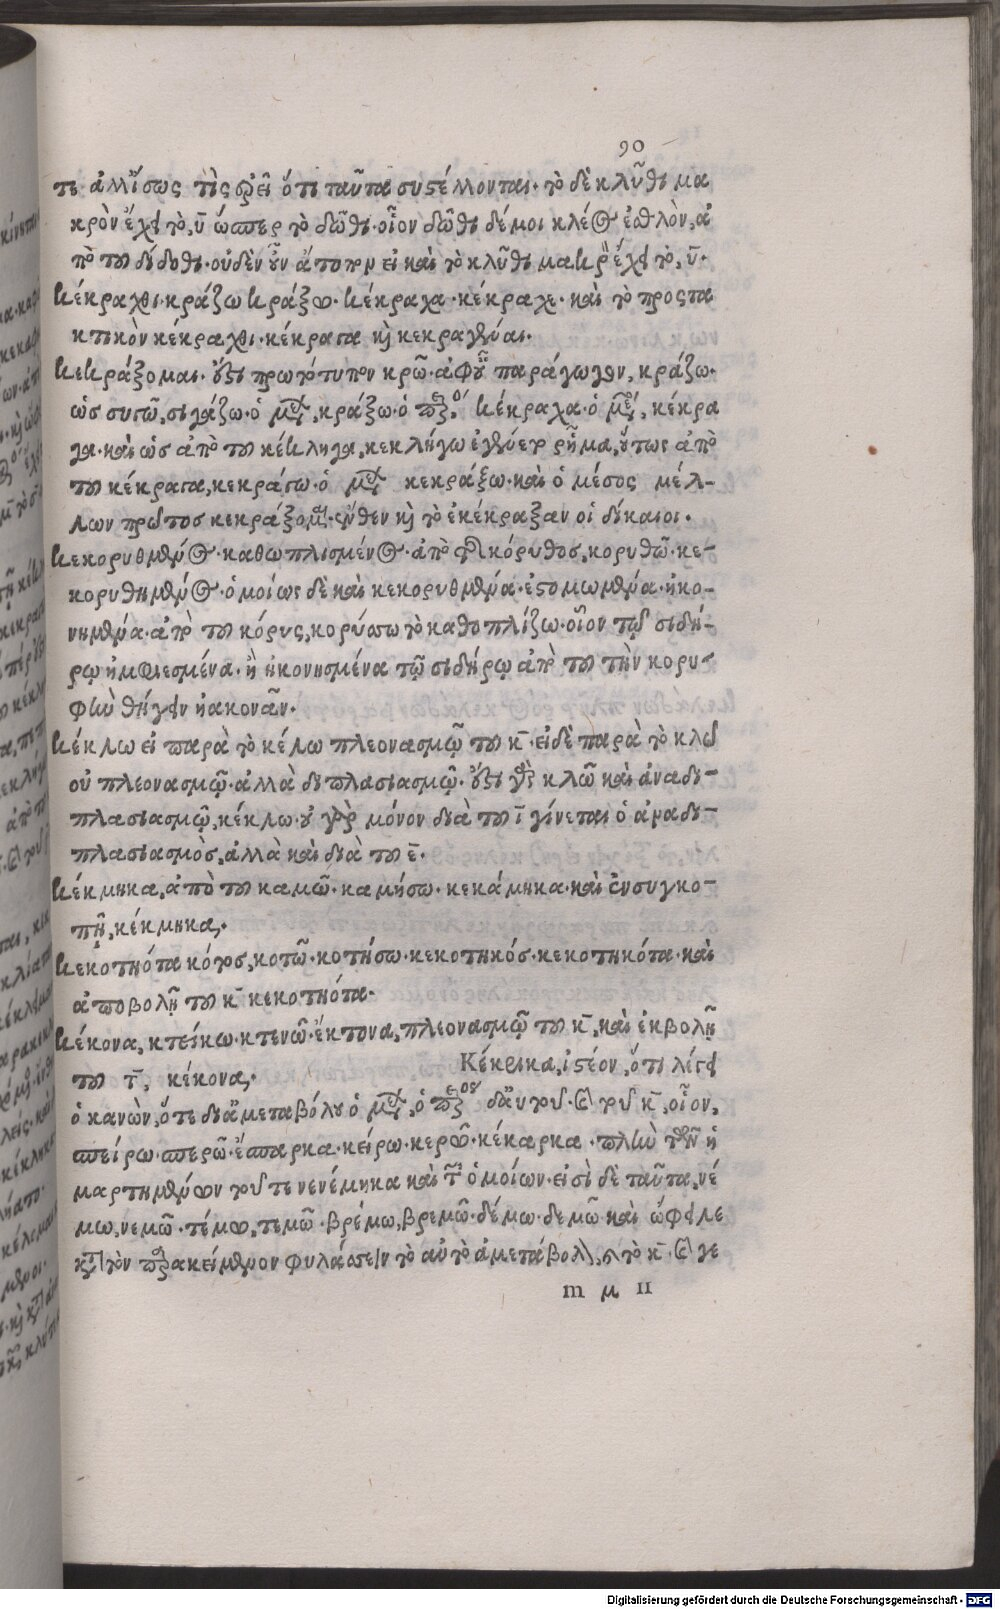 90
τε ἀλλ' ἴσως τὶς ἐρεῖ ὅτι ταῦτα συστέλλονται. τὸ δὲ κλῦθι μα
κρὸν ἔχει τὸ, ῡ ὥσπερ τὸ δῶθι. οἷον δῶθι δέ μοι κλέος ἐσθλὸν, ἀ
πὸ τοῦ δίδοθι. οὐδὲν οὖν ἄτοπον εἰ καὶ τὸ κλῦθι μακρὸν ἔχει τὸ, ῡ.
Κέκραχθι. κράζω κράξω. κέκραχα. κέκραχε. καὶ τὸ προστα
κτικὸν κέκραχθι. κέκραγα καὶ κεκραγέναι.
Κεκράξομαι. ἔστι πρωτότυπον κρῶ. ἀφ' οὗ παράγωγον, κράζω.
ὡς σιγῶ, σιγάζω. ὁ μέλλ, κράξω. ὁ παρακ. κέκραχα. ὁ μέσ, κέκρα
γα. καὶ ὡς ἀπὸ τοῦ κέκληγα, κεκλήγω ἐγένετο ῥῆμα, οὕτως ἀπὸ
τοῦ κέκραγα, κεκράγω. ὁ μέλλ κεκράξω. καὶ ὁ μέσος μέλ-
λων πρῶτος κεκράξομαι. ἔνθεν καὶ τὸ ἐκέκραξαν οἱ δίκαιοι.
Κεκορυθμένος. καθωπλισμένος. ἀπὸ τῆς κόρυθος, κορυθῶ. κε-
κορυθημένος. ὁμοίως δὲ καὶ κεκορυθμένα. ἐστομωμένα. ἠκο-
νημένα. ἀπὸ τοῦ κόρυς, κορύσσω τὸ καθοπλίζω. οἷον τῷ σιδή-
ρῳ ἠμφιεσμένα. ἢ ἠκονησμένα τῷ σιδήρῳ ἀπὸ τοῦ τὴν κορυ-
φὴν θήγειν ἢ ἀκονᾶν.
Κέκλω εἰ παρὰ τὸ κέλω πλεονασμῷ τοῦ κ̄. εἰ δὲ παρὰ τὸ κλῶ
οὐ πλεονασμῷ. ἀλλὰ διπλασιασμῷ. ἔστι γὰρ κλῶ καὶ ἀναδι-
πλασιασμῷ, κέκλω. οὐ γὰρ μόνον διὰ τοῦ ῑ γίνεται ὁ ἀναδι-
πλασιασμὸς, ἀλλὰ καὶ διὰ τοῦ ε̄.
Κέκμηκα, ἀπὸ τοῦ καμῶ. καμήσω. κεκάμηκα. καὶ ἐν συγκο-
πῇ, κέκμηκα.
Κεκοτηότα κότος, κοτῶ. κοτήσω. κεκοτηκός. κεκοτηκότα. καὶ
ἀποβολῇ τοῦ κ̄ κεκοτηότα.
Κέκονα, κτείνω. κτενῶ. ἔκτονα, πλεονασμῷ τοῦ κ̄, καὶ ἐκβολῇ
τοῦ τ̄, κέκονα.
Κέκρικα, ἰστέον, ὅτι λέγει
ὁ κανὼν, ὅτε δι' ἀμεταβόλου ὁ μέλλ, ὁ παρακ δι' αὐτοῦ. καὶ τοῦ κ̄, οἷον,
σπείρω. σπερῶ. ἔσπαρκα. κείρω. κερῶ. κέκαρκα. πλὴν τῶν ἡ
μαρτημένων τοῦ τε νενέμηκα καὶ τῶν ὁμοίων. εἰσὶ δὲ ταῦτα, νέ
μω, νεμῶ. τέμω, τεμῶ. βρέμω, βρεμῶ. δέμω. δεμῶ καὶ ὤφειλε
κατὰ τὸν παρακείμενον φυλάσσειν τὸ αὐτὸ ἀμετάβολον, καὶ τὸ κ̄. καὶ γε
m μ ii
Digitalisierung gefördert durch die Deutsche Forschungsgemeinschaft - DFG